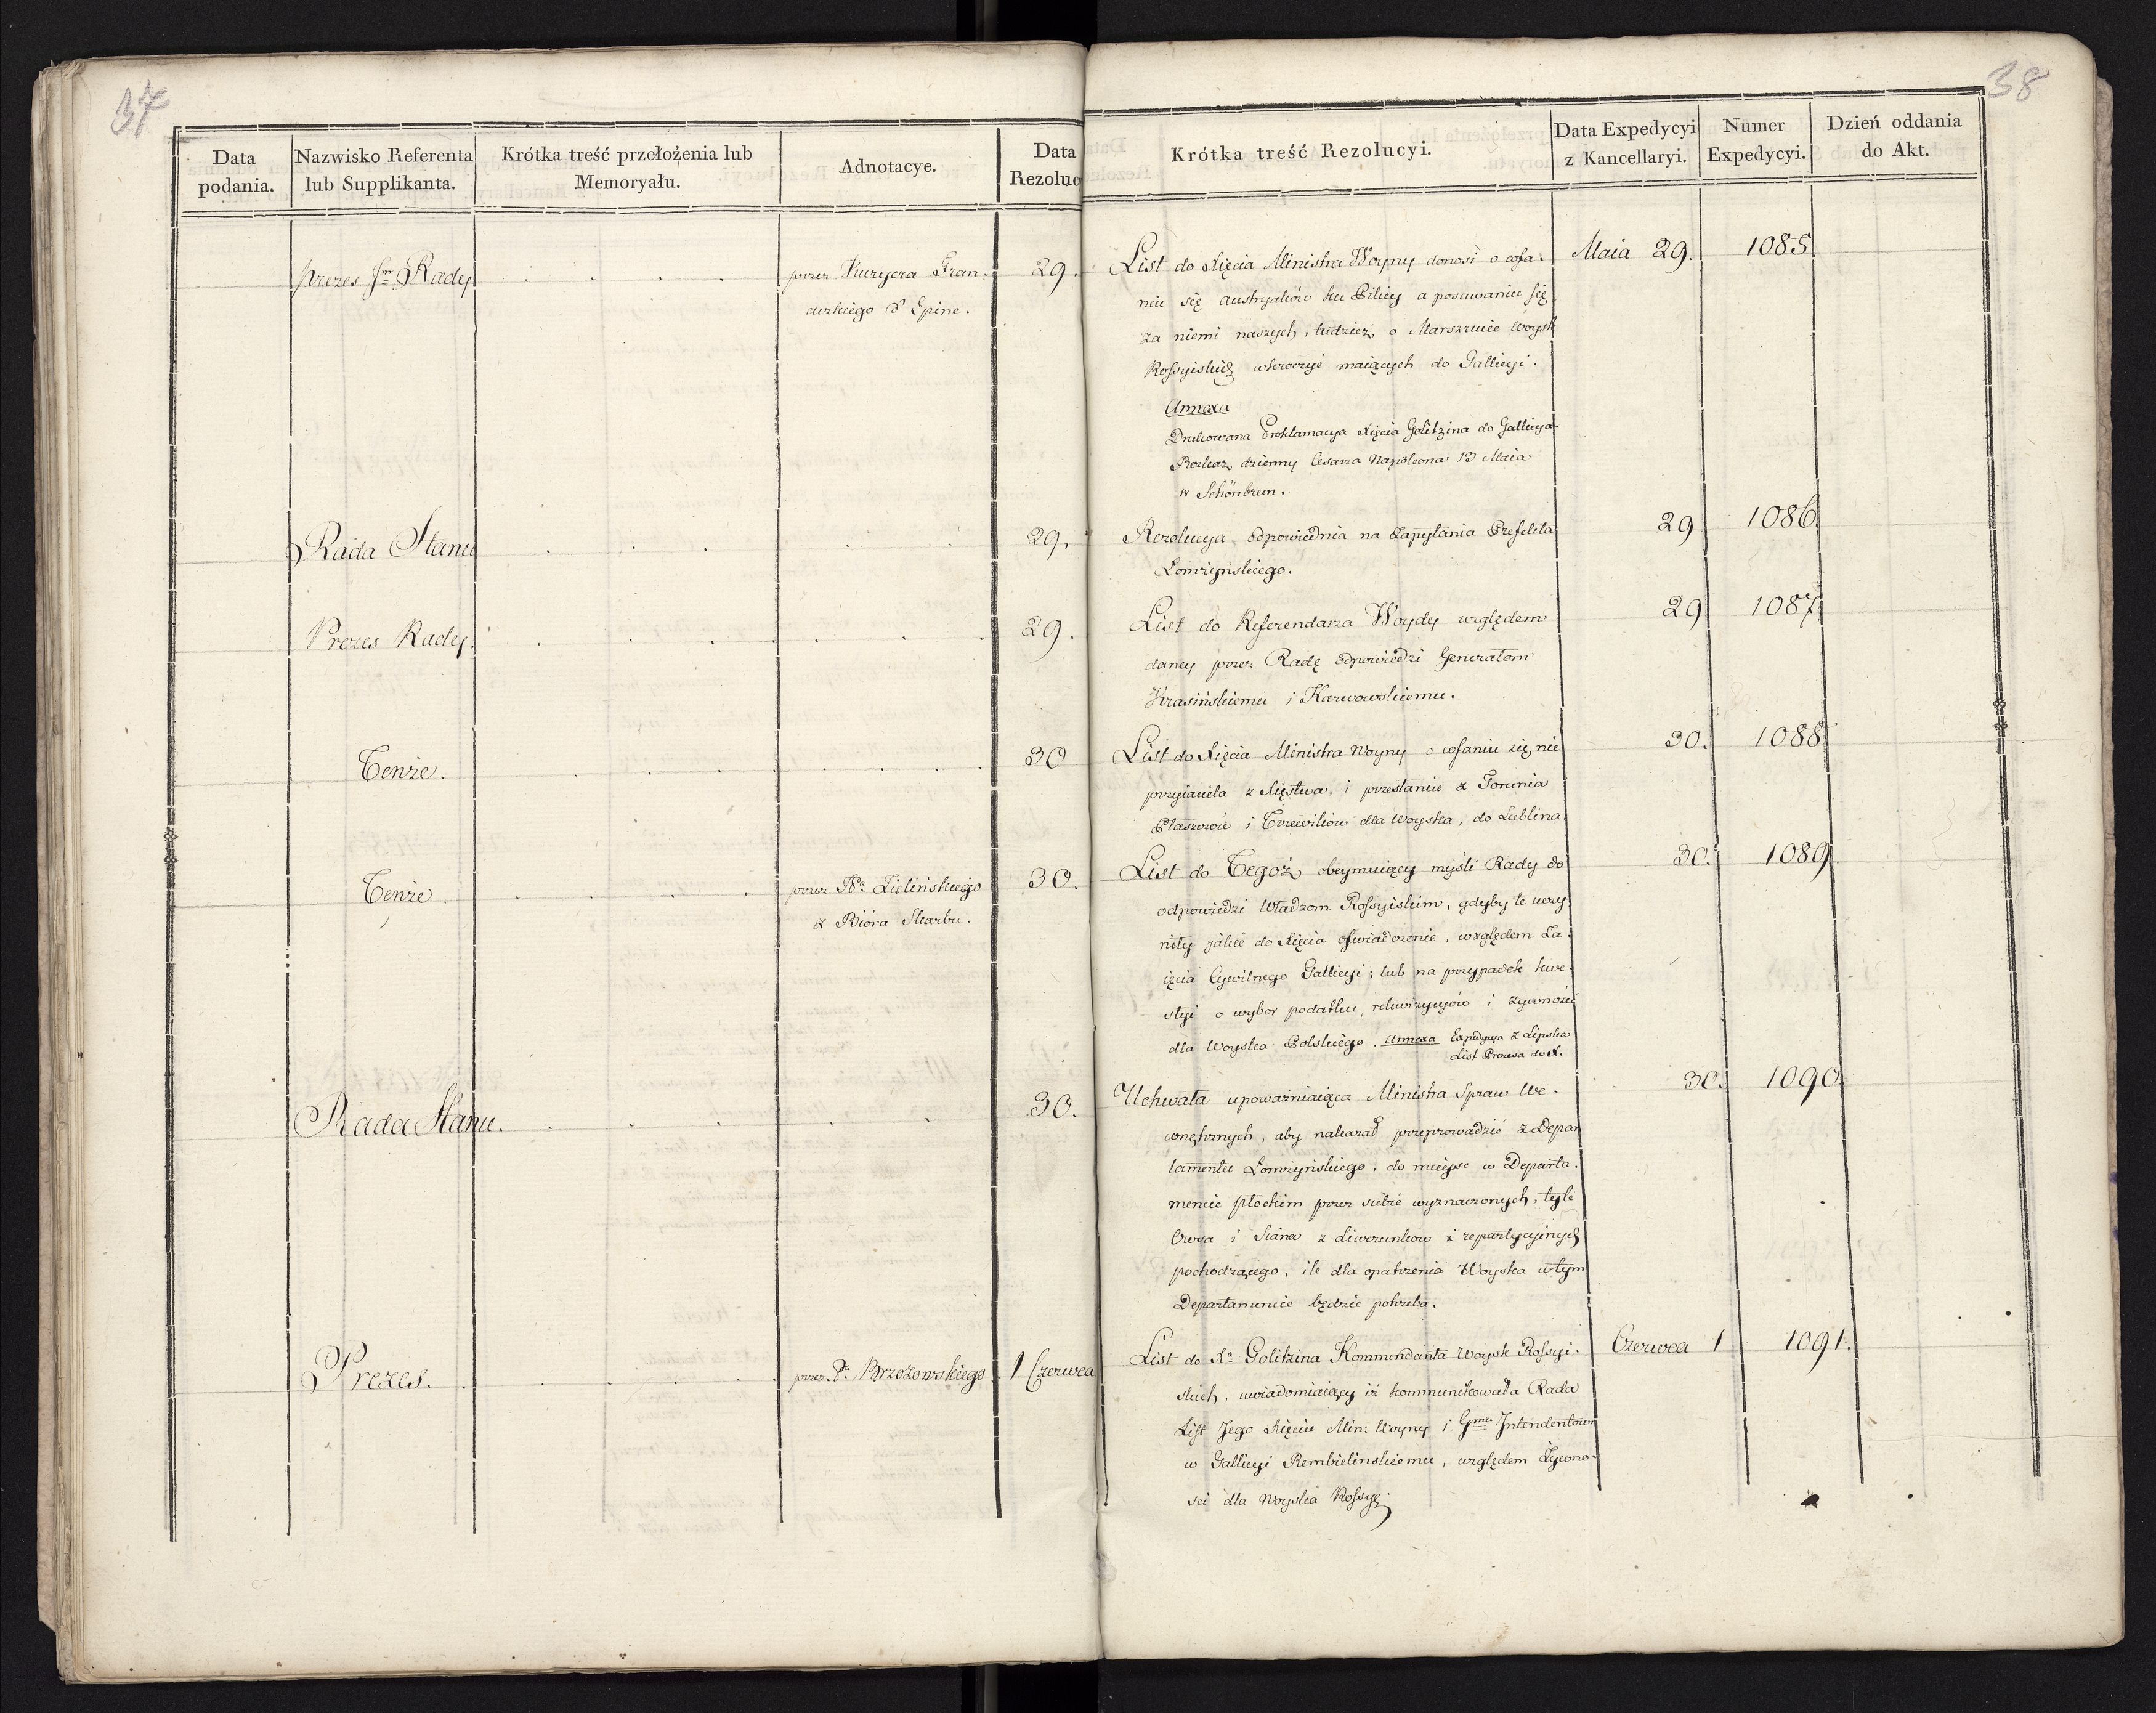 37
38
Data podania.
Nazwisko Referenta lub Supplikanta.
Krótka treść przełożenia lub Memoryału.
Adnotacye.
Data Rezoluc
Krótka treść Rezolucyi.
Data Expedycyi z Kancellaryi.
Numer Expedycyi.
Dzień oddania do Akt.
Prezes Rady
przez Kuryera Fran-
cuzkiego d'Epine.
29.
List do Xięcia Ministra Woyny donosi o cofa-
niu się Austryaków ku Pilicy a posuwaniu się
za niemi naszych, tudzież o Marszrucie Woysk
Rossyiskich wkroczyć maiących do Gallicyi.
Annexa
Drukowana Proklamacya Xięcia Golitzina do Gallicya-
Rozkaz dzienny Cesarza Napoleona 13 Maia
w Schönbrun.
Maia 29.
1085
Rada Stanu
29.
Rezolucya odpowiednia na Zapytania Prefekta
Łomżyńskiego.
29
1086.
Prezes Rady.
29.
List do Referendarza Woydy względem
daney przez Radę odpowiedzi Generałom
Krasińskiemu i Karwowskiemu.
29
1087.
Tenże.
30
List do Xięcia Ministra Woyny o cofaniu się nie
przyiaciela z Xięstwa, i przesłanie z Torunia
Płaszczów i Trzewików dla Woyska, do Lublina.
30.
1088
Tenże.
przez Pa: Zielińskiego
z Bióra Skarbu.
30.
List do Tegoż obeymuiący myśli Rady do
odpowiedzi Władzom Rossyiskim, gdyby te uczy
niły iakie do Xięcia oświadczenie, względem Za-
ięcia Cywilnego Gallicyi; lub na przypadek kwe-
styi o wybor podatku, rekwizycyiów i żywności
dla Woyska Polskiego. Annexa Expedycya z Lipska
List Prezesa do X.
30.
1089.
Rada Stanu.
30.
Uchwała upoważniaiąca Ministra Spraw We-
wnętrznych, aby nakazał przeprowadzić z Depar
tamentu Łomżyńskiego, do mieysc w Departa-
mencie płockim przez siebie wyznaczonych, tyle
Owsa i Siana z Liwerunków i repartycyinych
pochodzącego, ile dla opatrzenia Woyska w tym
Departamencie będzie potrzeba.
30.
1090.
Prezes.
przez P. Brzozowskiego
1 Czerwca
List do Xa Golitzina Kommendanta Woysk Rossyi-
skich, uwiadomiaiący iż kommunikowała Rada
List Jego Xięciu Min: Woyny i Gmu Intendentow
w Gallicyi Rembielinskiemu, względem Żywno-
sci dla Woyska Rossyi:
Czerwca 1
1091.